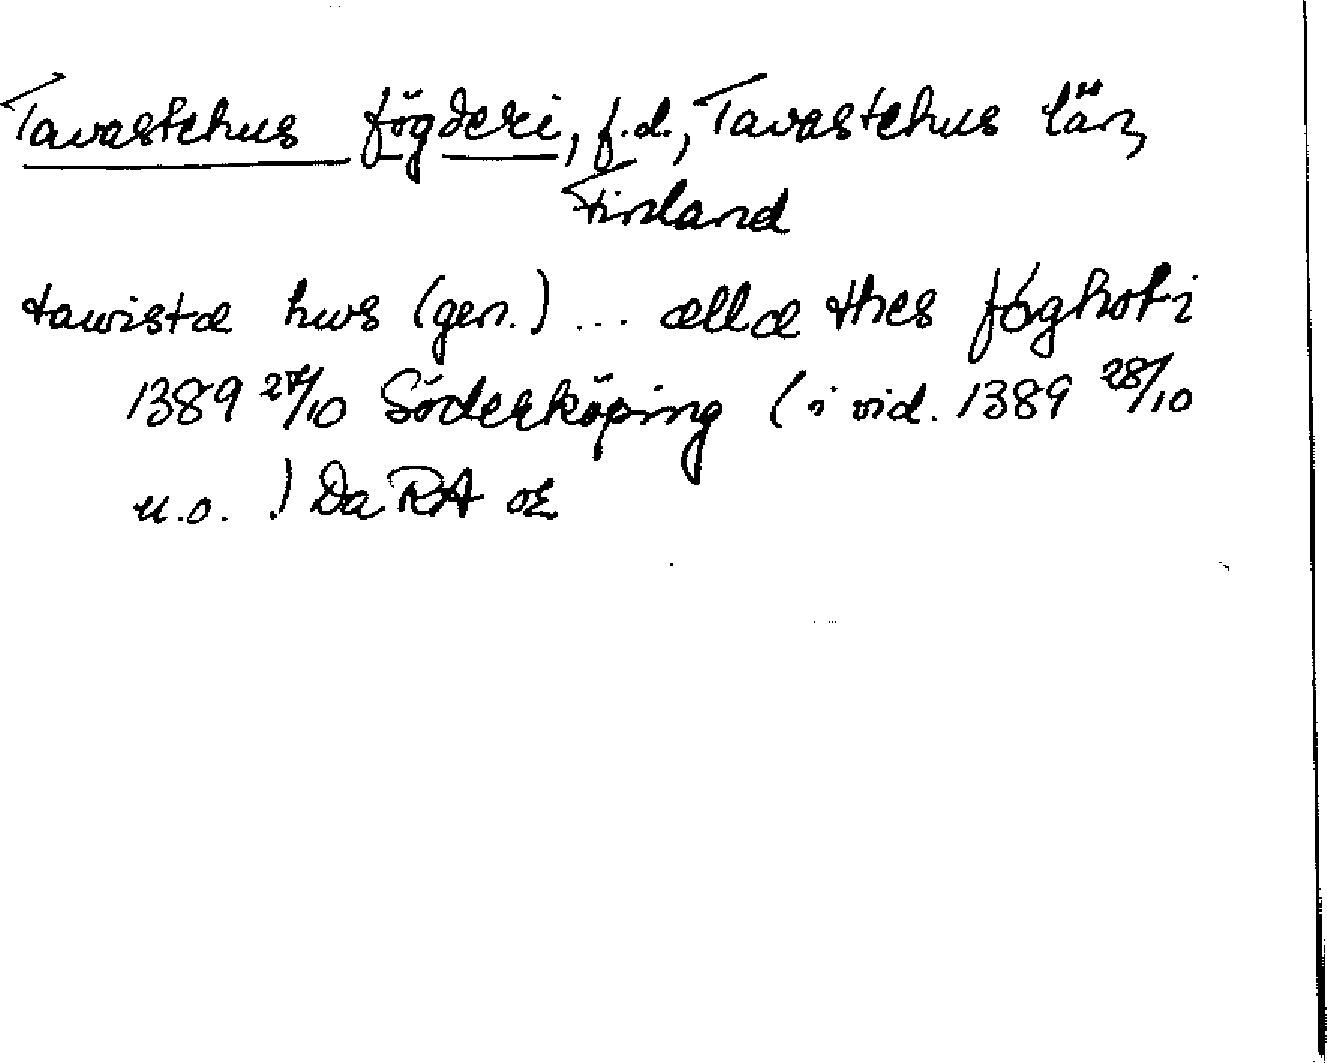 Tavastehus fögderi, f.d., Tavastehus län,
Finland
tawistæ hws (gen.) ... ællæ thes foghoti
1389 27/10 Söderköping (i vid. 1389 28/10
u.o.) Da RA